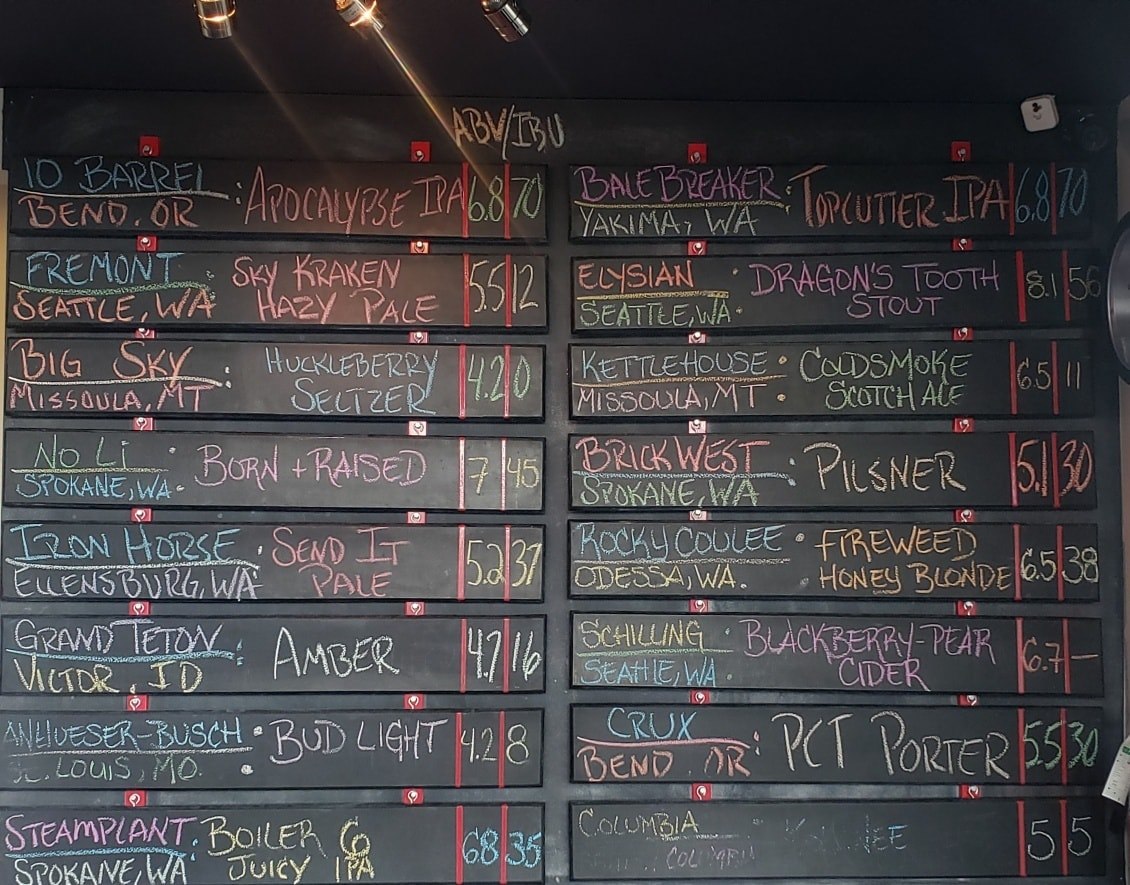 ABV/IBU
10 BARREL
BEND, OR
: APOCALYPSE IPA 6.8 70
FREMONT
SEATTLE, WA
: SKY KRAKEN
HAZY PALE
5.5 12
BIG SKY
MISSOULA, MT
: HUCKLEBERRY
SELTZER
4.2 0
NO LI
SPOKANE, WA
: BORN + RAISED 7 45
IRON HORSE
ELLENSBURG, WA
: SEND IT
PALE
5.2 37
GRAND TETON
VICTOR, ID
: AMBER 4.7 16
ANHUESER-BUSCH
ST. LOUIS, MO.
: BUD LIGHT 4.2 8
STEAMPLANT
SPOKANE, WA
: BOILER 6
JUICY IPA
6.8 35
BALE BREAKER
YAKIMA, WA
: TOPCUTTER IPA 6.8 70
ELYSIAN
SEATTLE, WA
: DRAGON'S TOOTH
STOUT
8.1 56
KETTLEHOUSE
MISSOULA, MT
: COLDSMOKE
SCOTCH ALE
6.5 11
BRICK WEST
SPOKANE, WA
: PILSNER 5.1 30
ROCKY COULEE
ODESSA, WA.
: FIREWEED
HONEY BLONDE
6.5 38
SCHILLING
SEATTLE, WA
: BLACKBERRY-PEAR
CIDER
6.7 —
CRUX
BEND, OR
: PCT PORTER 5.5 30
COLUMBIA
5 5